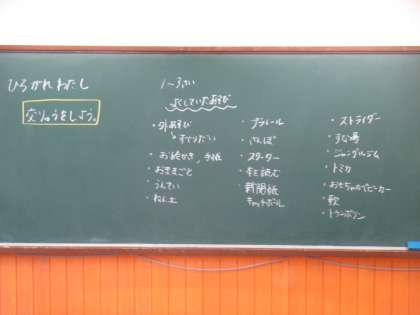 ひろがれ わたし
交りゅうをしよう。
1〜3さい
よくしていたあそび
・外あそび
すべりだい
・お絵かき、手紙
・おままごと
・うんてい
・ねん土
・プラレール
・さんぽ
・スクーター
・本を読む
・新聞紙
キャッチボール
・ストライダー
・すな場
・ジャングルジム
・トミカ
・おもちゃのベビーカー
・歌
・トランポリン